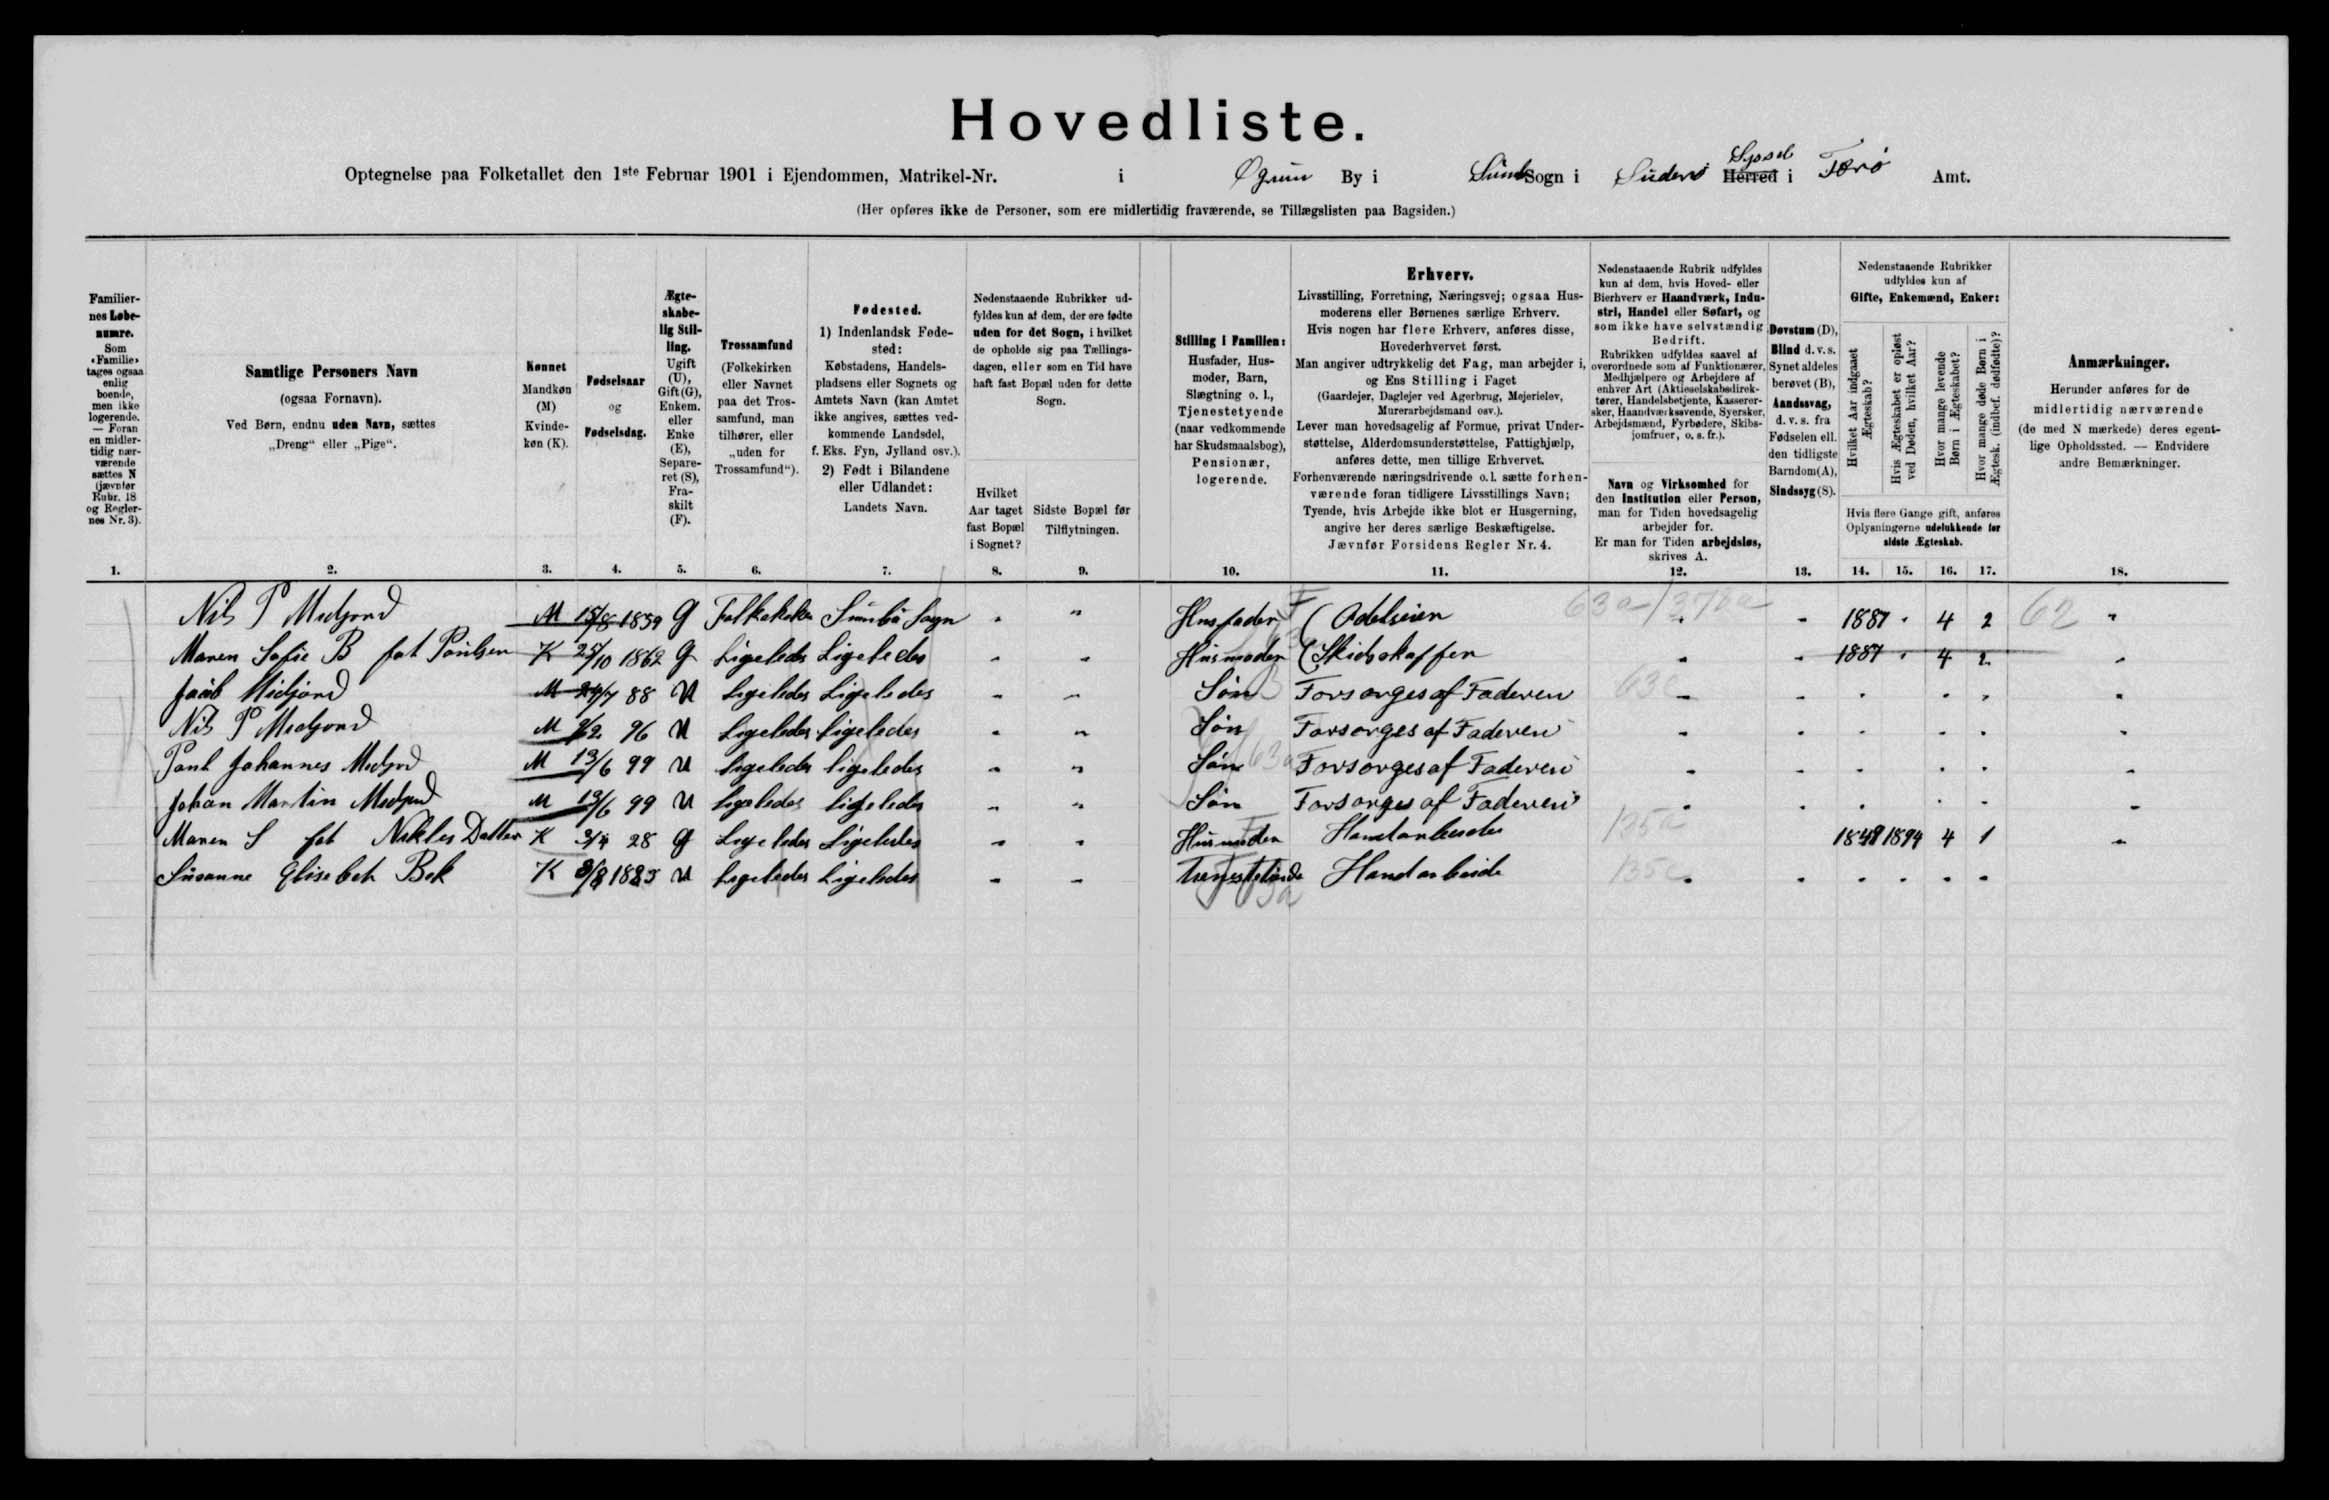 Hovedliste.
Optegnelse paa Folketallet den 1ste Februar 1901 i Ejendommen, Matrikel-Nr. i By i Sogn i Suderø Herred Syssel i Færø Amt.
(Her opføres ikke de Personer, som ere midlertidig fraværende, se Tillægslisten paa Bagsiden.)
Familiernes Løbenumre.
Som «Familie» tages ogsaa enlig boende, men ikke logerende. — Foran en midlertidig nærværende sættes N (jævnfør Rubr. 18 og Reglernes Nr. 3).
Samtlige Personers Navn
(ogsaa Fornavn).
Ved Børn, endnu uden Navn, sættes „Dreng“ eller „Pige“.
Kønnet
Mandkøn (M)
Kvindekøn (K).
Fødselsaar
og
Fødselsdag.
Ægteskabelig Stilling.
Ugift (U), Gift (G), Enkem. eller Enke (E), Separeret (S), Fraskilt (F).
Trossamfund
(Folkekirken eller Navnet paa det Trossamfund, man tilhører, eller „uden for Trossamfund“).
Fødested.
1) Indenlandsk Fødested:
Købstadens, Handelspladsens eller Sognets og Amtets Navn (kan Amtet ikke angives, sættes vedkommende Landsdel, f. Eks. Fyn, Jylland osv.).
2) Født i Bilandene eller Udlandet:
Landets Navn.
Nedenstaaende Rubrikker udfyldes kun af dem, der ere fødte uden for det Sogn, i hvilket de opholde sig paa Tællingsdagen, eller som en Tid have haft fast Bopæl uden for dette Sogn.
Hvilket Aar taget fast Bopæl i Sognet?
Sidste Bopæl før Tilflytningen.
Stilling i Familien:
Husfader, Husmoder, Barn, Slægtning o. l., Tjenestetyende (naar vedkommende har Skudsmaalsbog), Pensionær, logerende.
Erhverv.
Livsstilling, Forretning, Næringsvej; ogsaa Husmoderens eller Børnenes særlige Erhverv.
Hvis nogen har flere Erhverv, anføres disse, Hovederhvervet først.
Man angiver udtrykkelig det Fag, man arbejder i, og Ens Stilling i Faget
(Gaardejer, Daglejer ved Agerbrug, Mejerielev, Murerarbejdsmand osv.).
Lever man hovedsagelig af Formue, privat Understøttelse, Alderdomsunderstøttelse, Fattighjælp, anføres dette, men tillige Erhvervet.
Forhenværende næringsdrivende o. l. sætte forhenværende foran tidligere Livsstillings Navn;
Tyende, hvis Arbejde ikke blot er Husgerning, angive her deres særlige Beskæftigelse.
Jævnfør Forsidens Regler Nr. 4.
Nedenstaaende Rubrik udfyldes kun af dem, hvis Hoved- eller Bierhverv er Haandværk, Industri, Handel eller Søfart, og som ikke have selvstændig Bedrift.
Rubrikken udfyldes saavel af overordnede som af Funktionærer, Medhjælpere og Arbejdere af enhver Art (Aktieselskabsdirektører, Handelsbetjente, Kasserersker, Haandværkssvende, Syersker, Arbejdsmænd, Fyrbødere, Skibsjomfruer, o. s. fr.).
Navn og Virksomhed for den Institution eller Person, man for Tiden hovedsagelig arbejder for.
Er man for Tiden arbejdsløs, skrives A.
Døvstum (D), Blind d. v. s. Synet aldeles berøvet (B), Aandssvag, d. v. s. fra Fødselen ell. den tidligste Barndom (A), Sindssyg (S).
Nedenstaaende Rubrikker udfyldes kun af
Gifte, Enkemænd, Enker:
Hvilket Aar indgaaet Ægteskab?
Hvis Ægteskabet er opløst ved Døden, hvilket Aar?
Hvor mange levende Børn i Ægteskabet?
Hvor mange døde Børn i Ægtesk. (indbef. dødfødte)?
Hvis flere Gange gift, anføres Oplysningerne udelukkende for sidste Ægteskab.
Anmærkninger.
Herunder anføres for de midlertidig nærværende (de med N mærkede) deres egentlige Opholdssted. — Endvidere andre Bemærkninger.
1. 2. 3. 4. 5. 6. 7. 8. 9. 10. 11. 12. 13. 14. 15. 16. 17. 18.
Nils P Midjord M 15/8 1859 G Sumbø Sogn - " Husfader 63a/378a - - 1887 . 4 2 62 "
Maren Sofie B føt Poulsen K 25/10 1862 G Ligeledes Ligeledes - - Husmoder - - 1887 . 4 2 -
Midjord M 24/7 88 U Ligeledes Ligeledes - - Søn Forsørges af Faderen 63c - - . . . . -
Nils P Midjord M 96 U Ligeledes Ligeledes - - Søn Forsørges af Faderen - . . . . . .
Johannes Midjord M 13/6 99 U Ligeledes ligeledes - - Søn Forsørges af Faderen - - - . . . -
Johan Martin Midjord M 13/6 99 U Ligeledes ligeledes - - Søn Forsørges af Faderen - . . . . . -
Maren S føt Datter K 3/4 28 G Ligeledes Ligeledes - - Husmoder 135a 1894 4 1 -
Susanne Elisebet Bek K U Ligeledes Ligeledes - - 135c - . . . . .